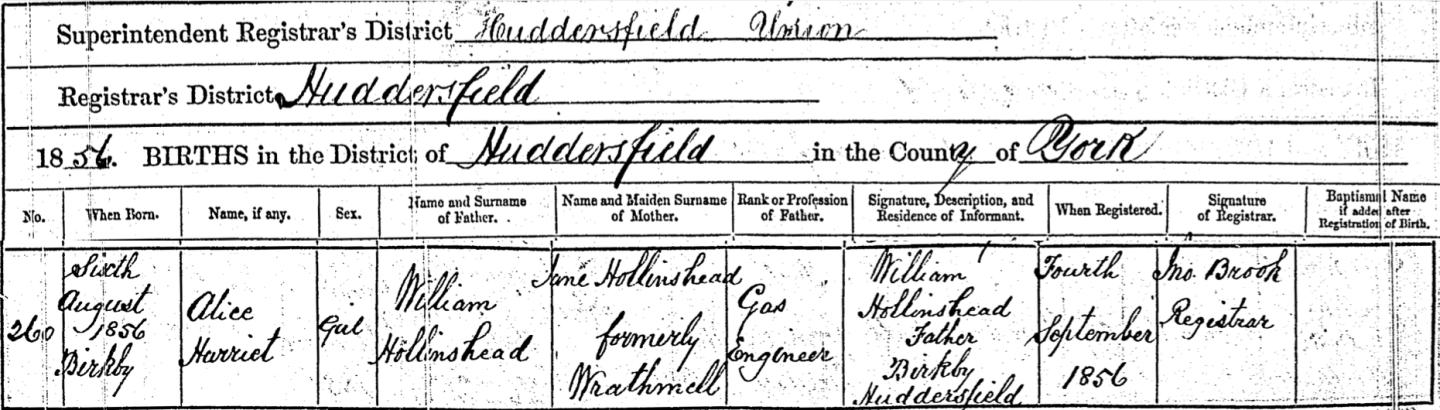 Superintendent Registrar's District Huddersfield Union
Registrar's District Huddersfield
1856. BIRTHS in the District of Huddersfield in the County of York
No.
When Born.
Name, if any.
Sex.
Name and Surname
of Father.
Name and Maiden Surname
of Mother.
Rank or Profession
of Father.
Signature, Description, and
Residence of Informant.
When Registered.
Signature
of Registrar.
Baptismal Name
if added after
Registration of Birth.
260
Sixth
August
1856
Birkby
Alice
Harriet
Girl
William
Hollinshead
Jane Hollinshead
formerly
Wrathmell
Gas
Engineer
William
Hollinshead
Father
Birkby
Huddersfield
Fourth
September
1856
Jno. Brook
Registrar